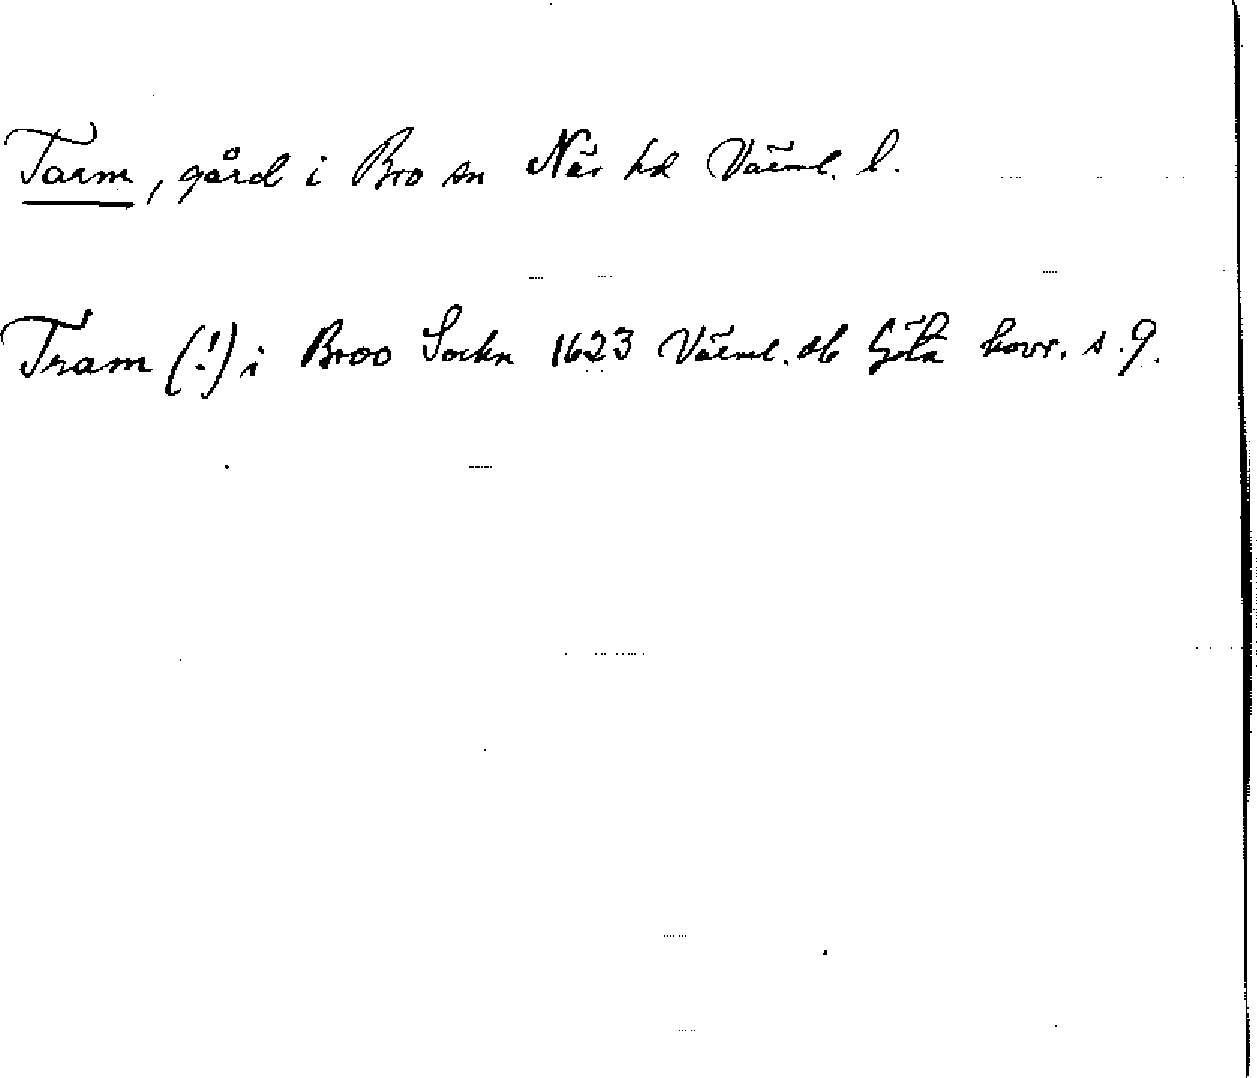 Tarm, gård i Bro sn Näs hd Värml. l.
Tram (!) i Broo Sockn 1623 Värml. db Göta hovr. s. 9.